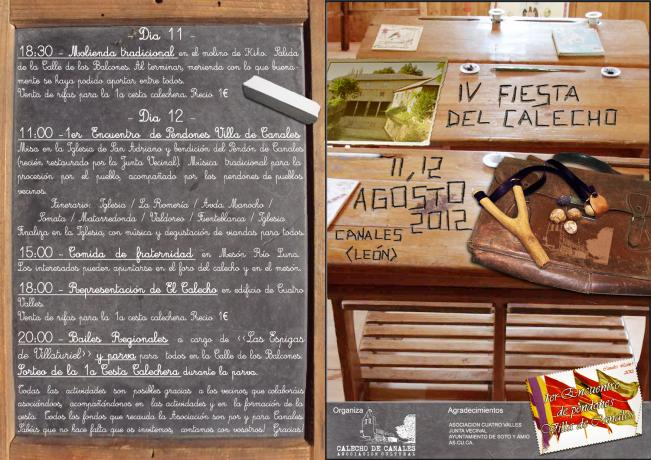 - Dia 11 -
18:30 - Molienda tradicional en el molino de Kiko. Salida
de la Calle de los Balcones. Al terminar, merienda con lo que buena-
mente se haya podido aportar entre todos.
Venta de rifas para la 1a cesta calechera. Precio 1€
- Dia 12 -
11:00 -1er Encuentro de Pendones Villa de Canales
Misa en la Iglesia de San Adriano y bendición del Pendón de Canales
(recién restaurado por la Junta Vecinal). Música tradicional para la
procesión por el pueblo, acompañado por los pendones de pueblos
vecinos.
Itinerario: Iglesia / La Romería / Avda. Manocho /
Sonata / Matarredonda / Valdoreo / Fuenteblanca / Iglesia
Finaliza en la Iglesia, con música y degustación de viandas para todos.
15:00 - Comida de fraternidad en Mesón Río Luna.
Los interesados pueden apuntarse en el foro del calecho y en el mesón.
18:00 - Representación de El Calecho en edificio de Cuatro
Valles.
Venta de rifas para la 1a cesta calechera. Precio 1€
20:00 - Bailes Regionales a cargo de <<Las Espigas
de Villaturiel>> y parva para todos en la Calle de los Balcones.
Sorteo de la 1a Cesta Calechera durante la parva.
Todas las actividades son posibles gracias a los vecinos que colaboráis
asociándoos, acompañándonos en las actividades y en la formación de la
cesta. Todos los fondos que recauda la Asociación son por y para Canales
Sabéis que no hace falta que os invitemos, contamos con vosotros! Gracias!
IV FIESTA
DEL CALECHO
11,12
AGOSTO
2012
CANALES
(LEÓN)
1er Encuentro
de pendones
Villa de Canales
Organiza
CALECHO DE CANALES
ASOCIACIÓN CULTURAL
Agradecimientos
ASOCIACION CUATRO VALLES
JUNTA VECINAL
AYUNTAMIENTO DE SOTO Y AMÍO
AS.CU.CA.